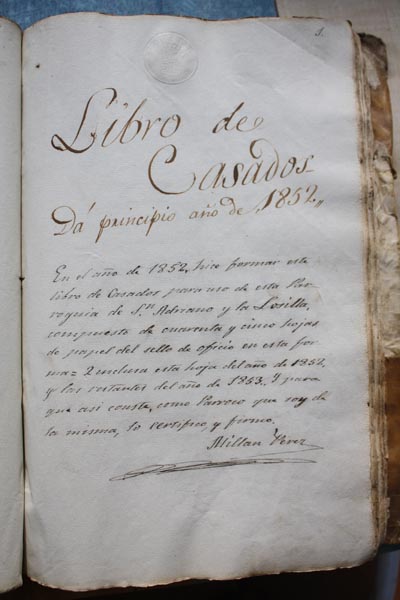 1.
Libro de
Casados
Dá principio año de 1852,,
En el año de 1852, hice formar este
libro de Casados para uso de esta Par-
roquia de S.n Adriano y la Losilla,
compuesto de cuarenta y cinco hojas
de papel del sello de oficio en esta for-
ma = 2 inclusa esta hoja del año de 1852,
y las restantes del año de 1853. Y para
que asi conste, como Parroco que soy de
la misma, lo certifico y firmo.
Millan Perez